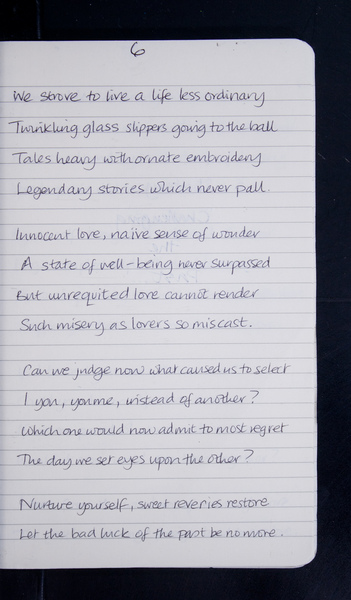 6
We strove to live a life less ordinary
Twinkling glass slippers going to the ball
Tales heavy with ornate embroidery
Legendary stories which never pall.
Innocent love, naïve sense of wonder
A state of well-being never surpassed
But unrequited love cannot render
Such misery as lovers so miscast.
Can we judge now what caused us to select
I you, you me, instead of another?
Which one would now admit to most regret
The day we set eyes upon the other?
Nurture yourself, sweet reveries restore
Let the bad luck of the past be no more.